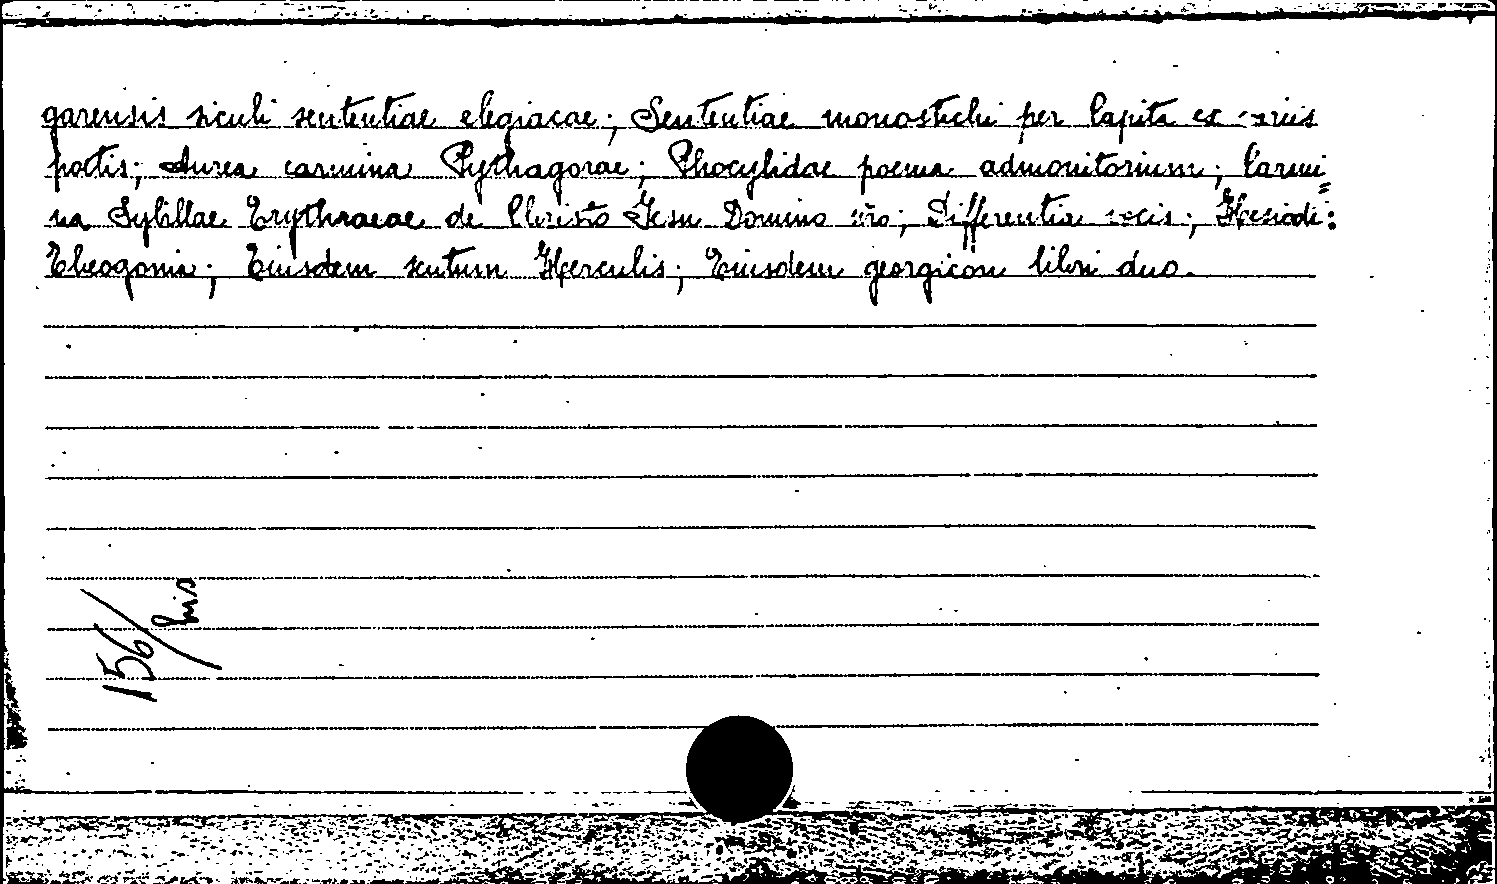 garensis siculi sententiae elegiacae; Sententiae monostichi per Capita ex variis
poetis; Aurea carmina Pythagorae; Phocylidae poema admonitorium; Carmi=
na Sybillae Erythraeae de Christo Jesu Domino nro; Differentia vocis; Hesiodi:
Theogonia; Eiusdem scutum Herculis; Eiusdem georgicon libri duo.
156/bis